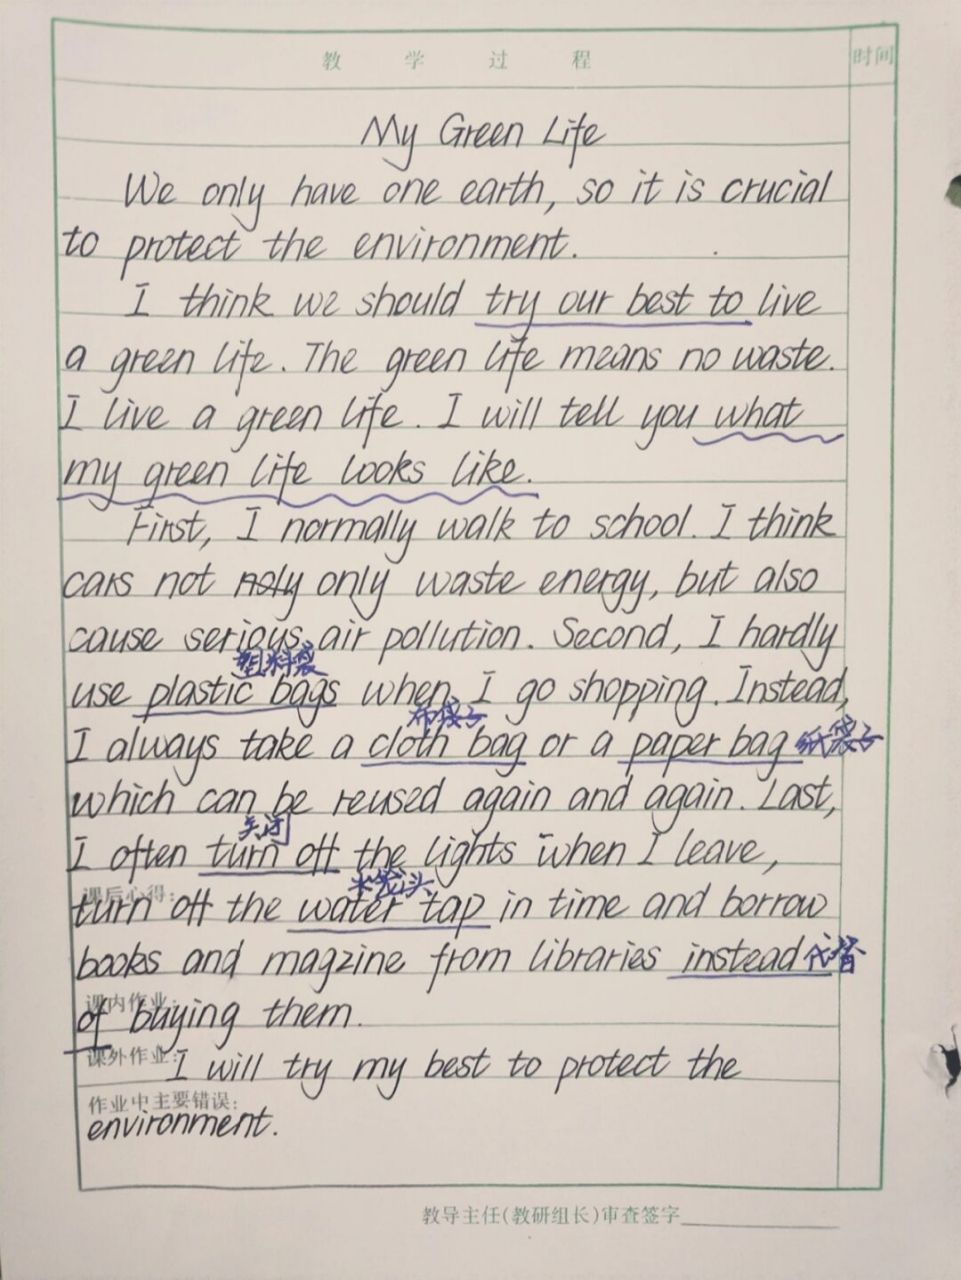 教 学 过 程 时间
My Green Life
We only have one earth, so it is crucial
to protect the environment.
I think we should try our best to live
a green life. The green life means no waste.
I live a green life. I will tell you what
my green life looks like.
First, I normally walk to school. I think
cars not only waste energy, but also
cause serious air pollution. Second, I hardly
塑料袋
use plastic bags when I go shopping. Instead,
布袋子
I always take a cloth bag or a paper bag 纸袋子
which can be reused again and again. Last,
关闭
I often turn off the lights when I leave,
水龙头
课后心得:
turn off the water tap in time and borrow
books and magzine from libraries instead 代替
课内作业:
of buying them.
课外作业:
I will try my best to protect the
作业中主要错误:
environment.
教导主任(教研组长)审查签字